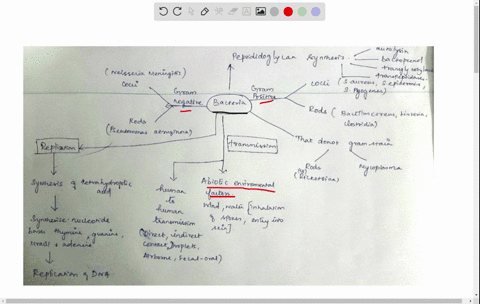 Peptidoglycan Synthesis
bactoprenol
transpeptidase
(Neisseria Meningitis)
cocci
Gram
negative
Bacteria
Gram
Positive
cocci
(S. aureus, S. epidermis,
S. Pyogenes)
Rods (Bacillus cereus, listeria,
clostridia)
Rods
(Pseudomonas aeruginosa)
That donot gram stain
Rods
(Rickettsia)
Mycoplasma
Replication
Transmission
Synthesis of tetrahydrofolic
acid
Synthesise nucleotide
base thymine, guanine,
uracil + adenine
Replication of DNA
human
to
human
transmission
(direct, indirect
contact, droplets,
airborne, fecal-oral)
Abiotic enviromental
factors
Wind, water [inhalation
of spores, entry into
skin]